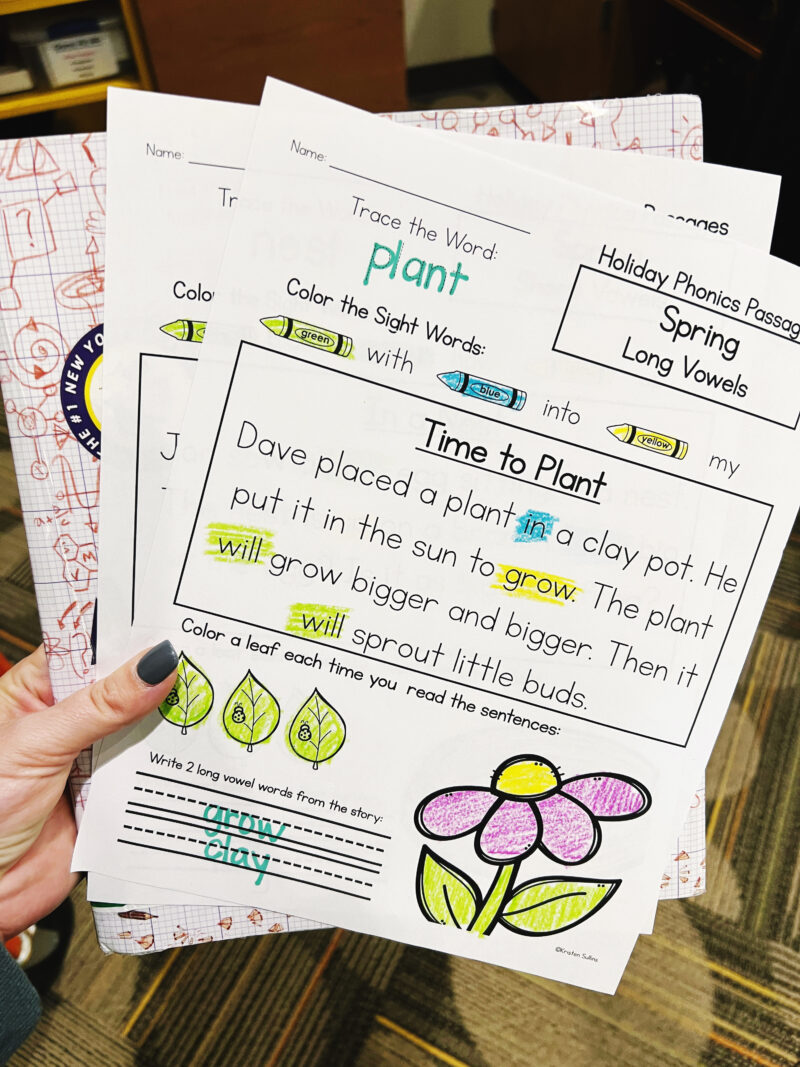 Name:
Trace the Word:
plant
Holiday Phonics
Spring
Long Vowels
Color the Sight Words:
green with blue into yellow my
Time to Plant
Dave placed a plant in a clay pot. He
put it in the sun to grow. The plant
will grow bigger and bigger. Then it
will sprout little buds.
Color a leaf each time you read the sentences:
Write 2 long vowel words from the story:
grow
clay
©Kristen Sullins
Name:
THE #1 NEW